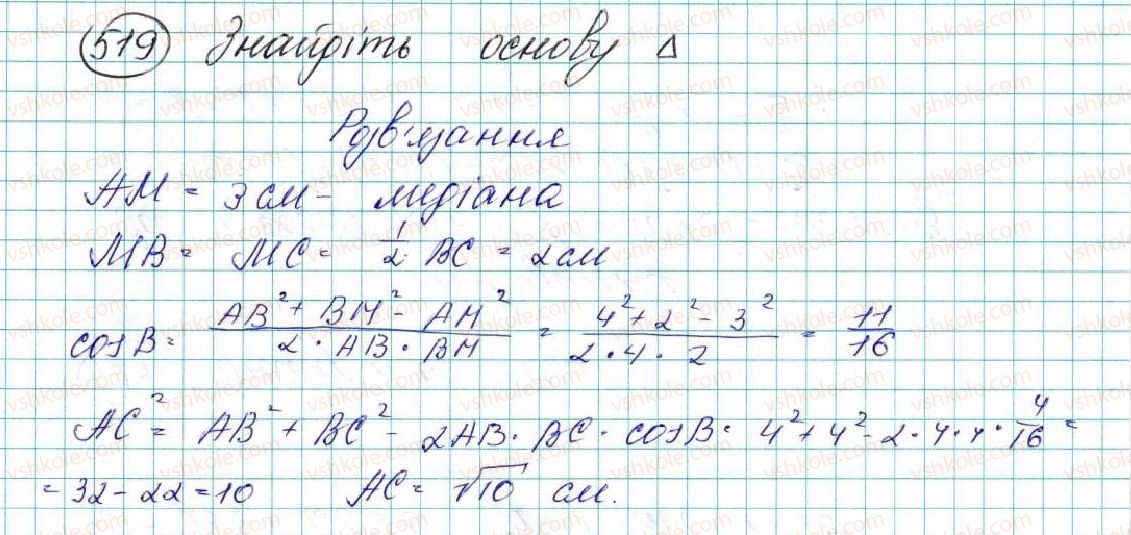 519 Знайдіть основу Δ
Розв'язання
AM = 3 см - медіана
MB = MC = 1/2 BC = 2 см
cos B = (AB² + BM² - AM²)/(2 · AB · BM) = (4² + 2² - 3²)/(2 · 4 · 2) = 11/16
AC² = AB² + BC² - 2AB · BC · cos B · 4² + 4² - 2 · 4 · 4 · 4/16 =
= 32 - 22 = 10 AC = √10 см.